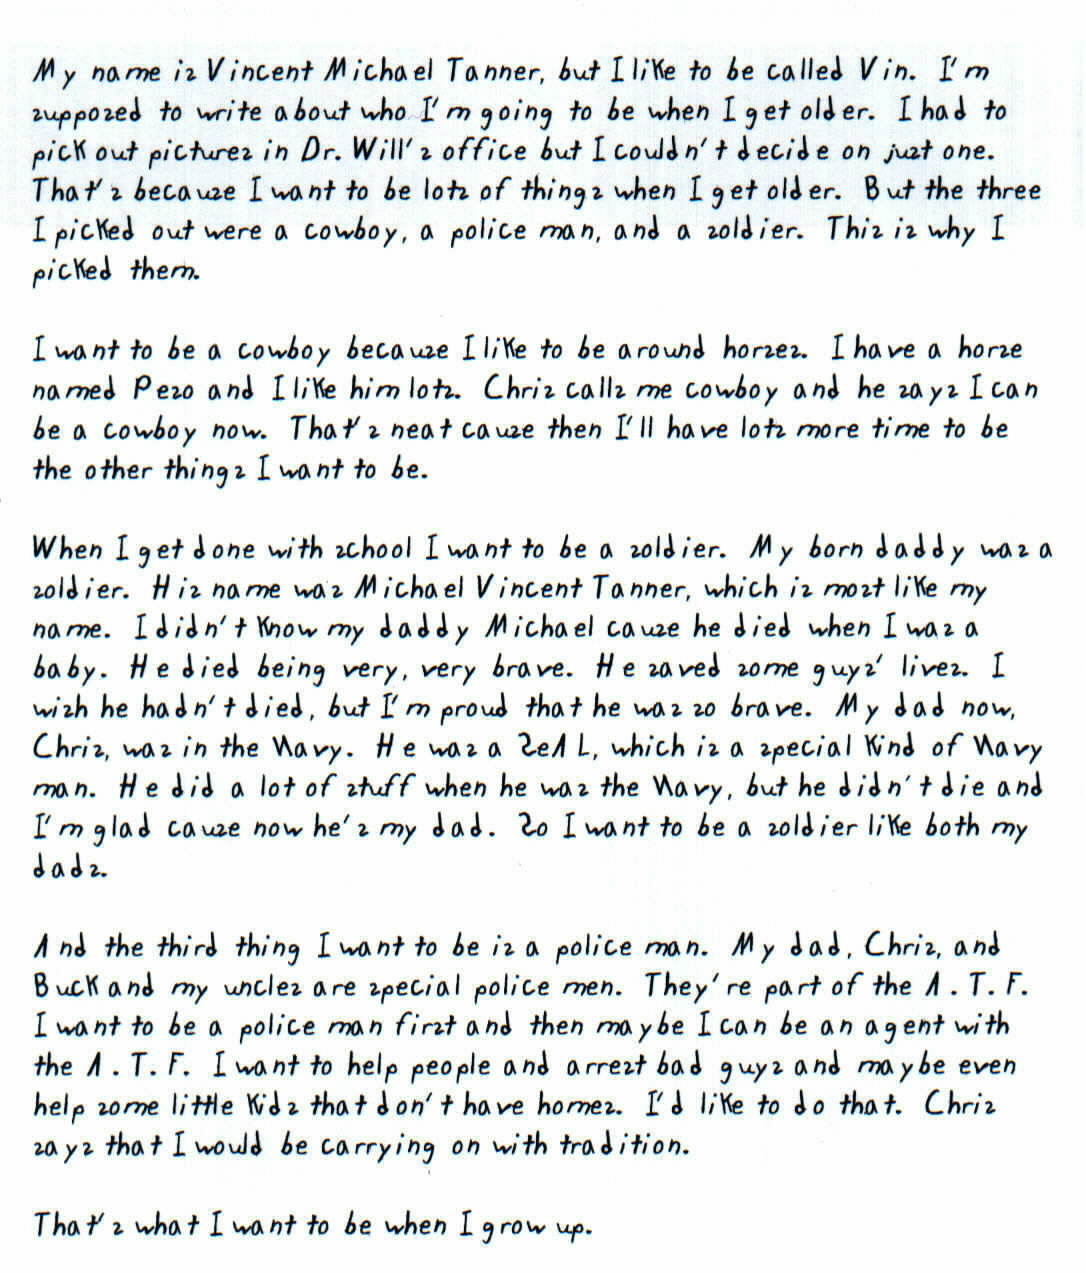 My name is Vincent Michael Tanner, but I like to be called Vin. I'm
supposed to write about who I'm going to be when I get older. I had to
pick out pictures in Dr. Will's office but I couldn't decide on just one.
That's because I want to be lots of things when I get older. But the three
I picked out were a cowboy, a police man, and a soldier. This is why I
picked them.

I want to be a cowboy because I like to be around horses. I have a horse
named Peso and I like him lots. Chris calls me cowboy and he says I can
be a cowboy now. That's neat cause then I'll have lots more time to be
the other things I want to be.

When I get done with school I want to be a soldier. My born daddy was a
soldier. His name was Michael Vincent Tanner, which is most like my
name. I didn't know my daddy Michael cause he died when I was a
baby. He died being very, very brave. He saved some guys' lives. I
wish he hadn't died, but I'm proud that he was so brave. My dad now,
Chris, was in the Navy. He was a SeAL, which is a special kind of Navy
man. He did a lot of stuff when he was the Navy, but he didn't die and
I'm glad cause now he's my dad. So I want to be a soldier like both my
dads.

And the third thing I want to be is a police man. My dad, Chris, and
Buck and my uncles are special police men. They're part of the A.T.F.
I want to be a police man first and then maybe I can be an agent with
the A.T.F. I want to help people and arrest bad guys and maybe even
help some little kids that don't have homes. I'd like to do that. Chris
says that I would be carrying on with tradition.

That's what I want to be when I grow up.